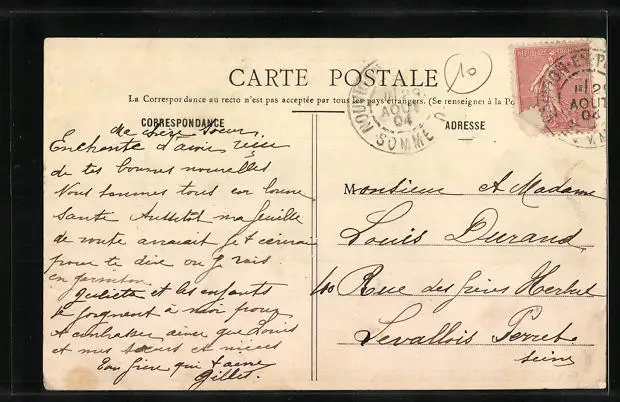 CARTE POSTALE
La Correspondance au recto n'est pas acceptée par tous les pays étrangers. (Se renseigner à la Po
CORRESPONDANCE
ADRESSE
10
29
AOUT
04
SOMME
29
AOUT
04
Ma chère soeur,
Enchanté d'avoir
de tes bonnes nouvelles
Nous sommes tous en bonne
santé Aussitôt ma feuille
de route je t'écrirai
pour te dire où j irais
en garnison
Juliette et les enfants
se joignent à moi pour
t'embrasser ainsi que Louis
et mes et nièces
Ton frère qui t'aime
Gillet.
Monsieur & Madame
Louis Durand
110 Rue des frères Herbert
Levallois Perret
Seine